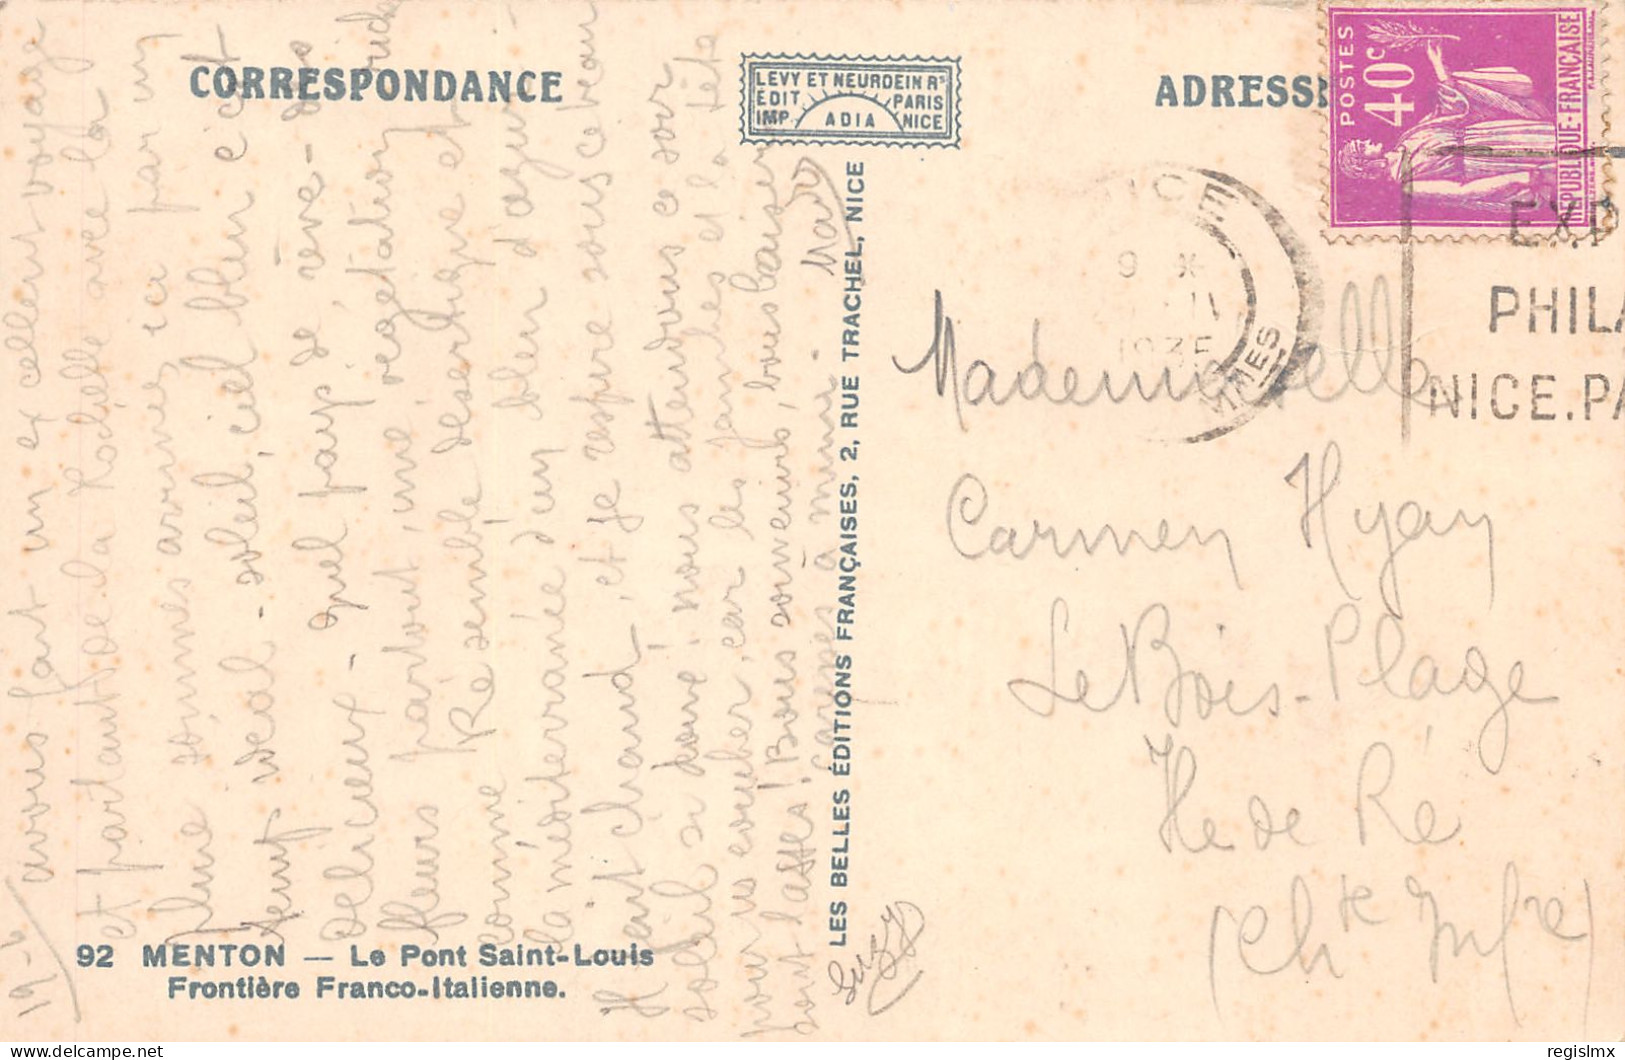 CORRESPONDANCE
LEVY ET NEURDEIN Rˢ
EDIT PARIS
IMP. ADIA NICE
ADRESS
POSTES
40ᶜ
REPUBLIQUE-FRANÇAISE
NICE
9
1935
MMES
EXP
PHILA
NICE.PA
19-
avons fait un excellent voyage
et partant de la Rochelle avec la
pluie sommes arrivés ici par un
temps idéal - soleil, ciel bleu c'est
délicieux - quel pays de rêve - des
fleurs partout, une vegetation
comme désertique et
la méditerranée d'un bleu d'azur -
Il fait chaud, et je respire sous ce beau
soleil si doré, nous attendons ce soir
pour se coucher, car les jambes et la tête
sont lasses! Bons souvenirs, bons baisers
caresses à mimi
Suzy
LES BELLES ÉDITIONS FRANÇAISES, 2, RUE TRACHEL, NICE
Mademoiselle
Carmen Hyay
Le Bois-Plage
Ile de Ré
(Chᵗᵉ Infʳᵉ)
92 MENTON — Le Pont Saint-Louis
Frontière Franco-Italienne.
regislmx
delcampe.net